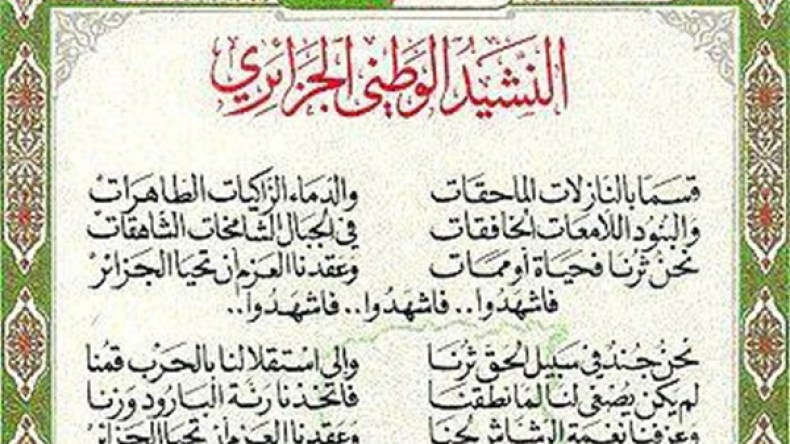 النشيد الوطني الجزائري
قسما بالنازلات الماحقات والدماء الزاكيات الطاهرات
والبنود اللامعات الخافقات في الجبال الشامخات الشاهقات
نحن ثرنا فحياة أو ممات وعقدنا العزم أن تحيا الجزائر
فاشهدوا.. فاشهدوا.. فاشهدوا..
نحن جند في سبيل الحق ثرنا والى استقلالنا بالحرب قمنا
لم يكن يصغى لنا لما نطقنا فاتخذنا رنة البارود وزنا
وعزفنا نغمة الرشاش لحنا وعقدنا العزم أن تحيا الجزائر